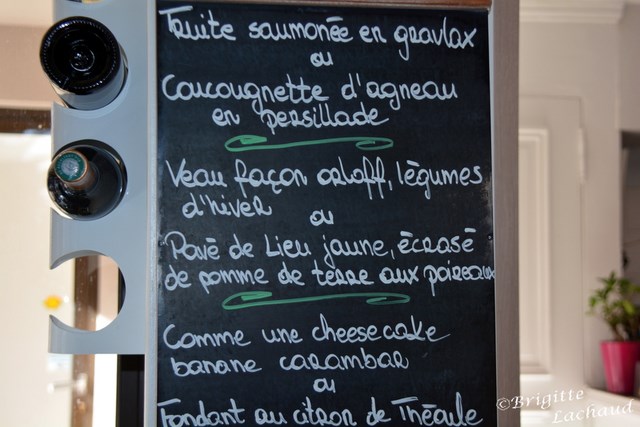 Truite saumonée en gravlax
ou
Coucougnette d'agneau
en persillade
Veau façon orloff, légumes
d'hiver
ou
Pavé de Lieu jaune, écrasé
de pomme de terre aux poireaux
Comme une cheesecake
banane carambar
ou
Fondant au citron de Théoule
©Brigitte
Lachaud